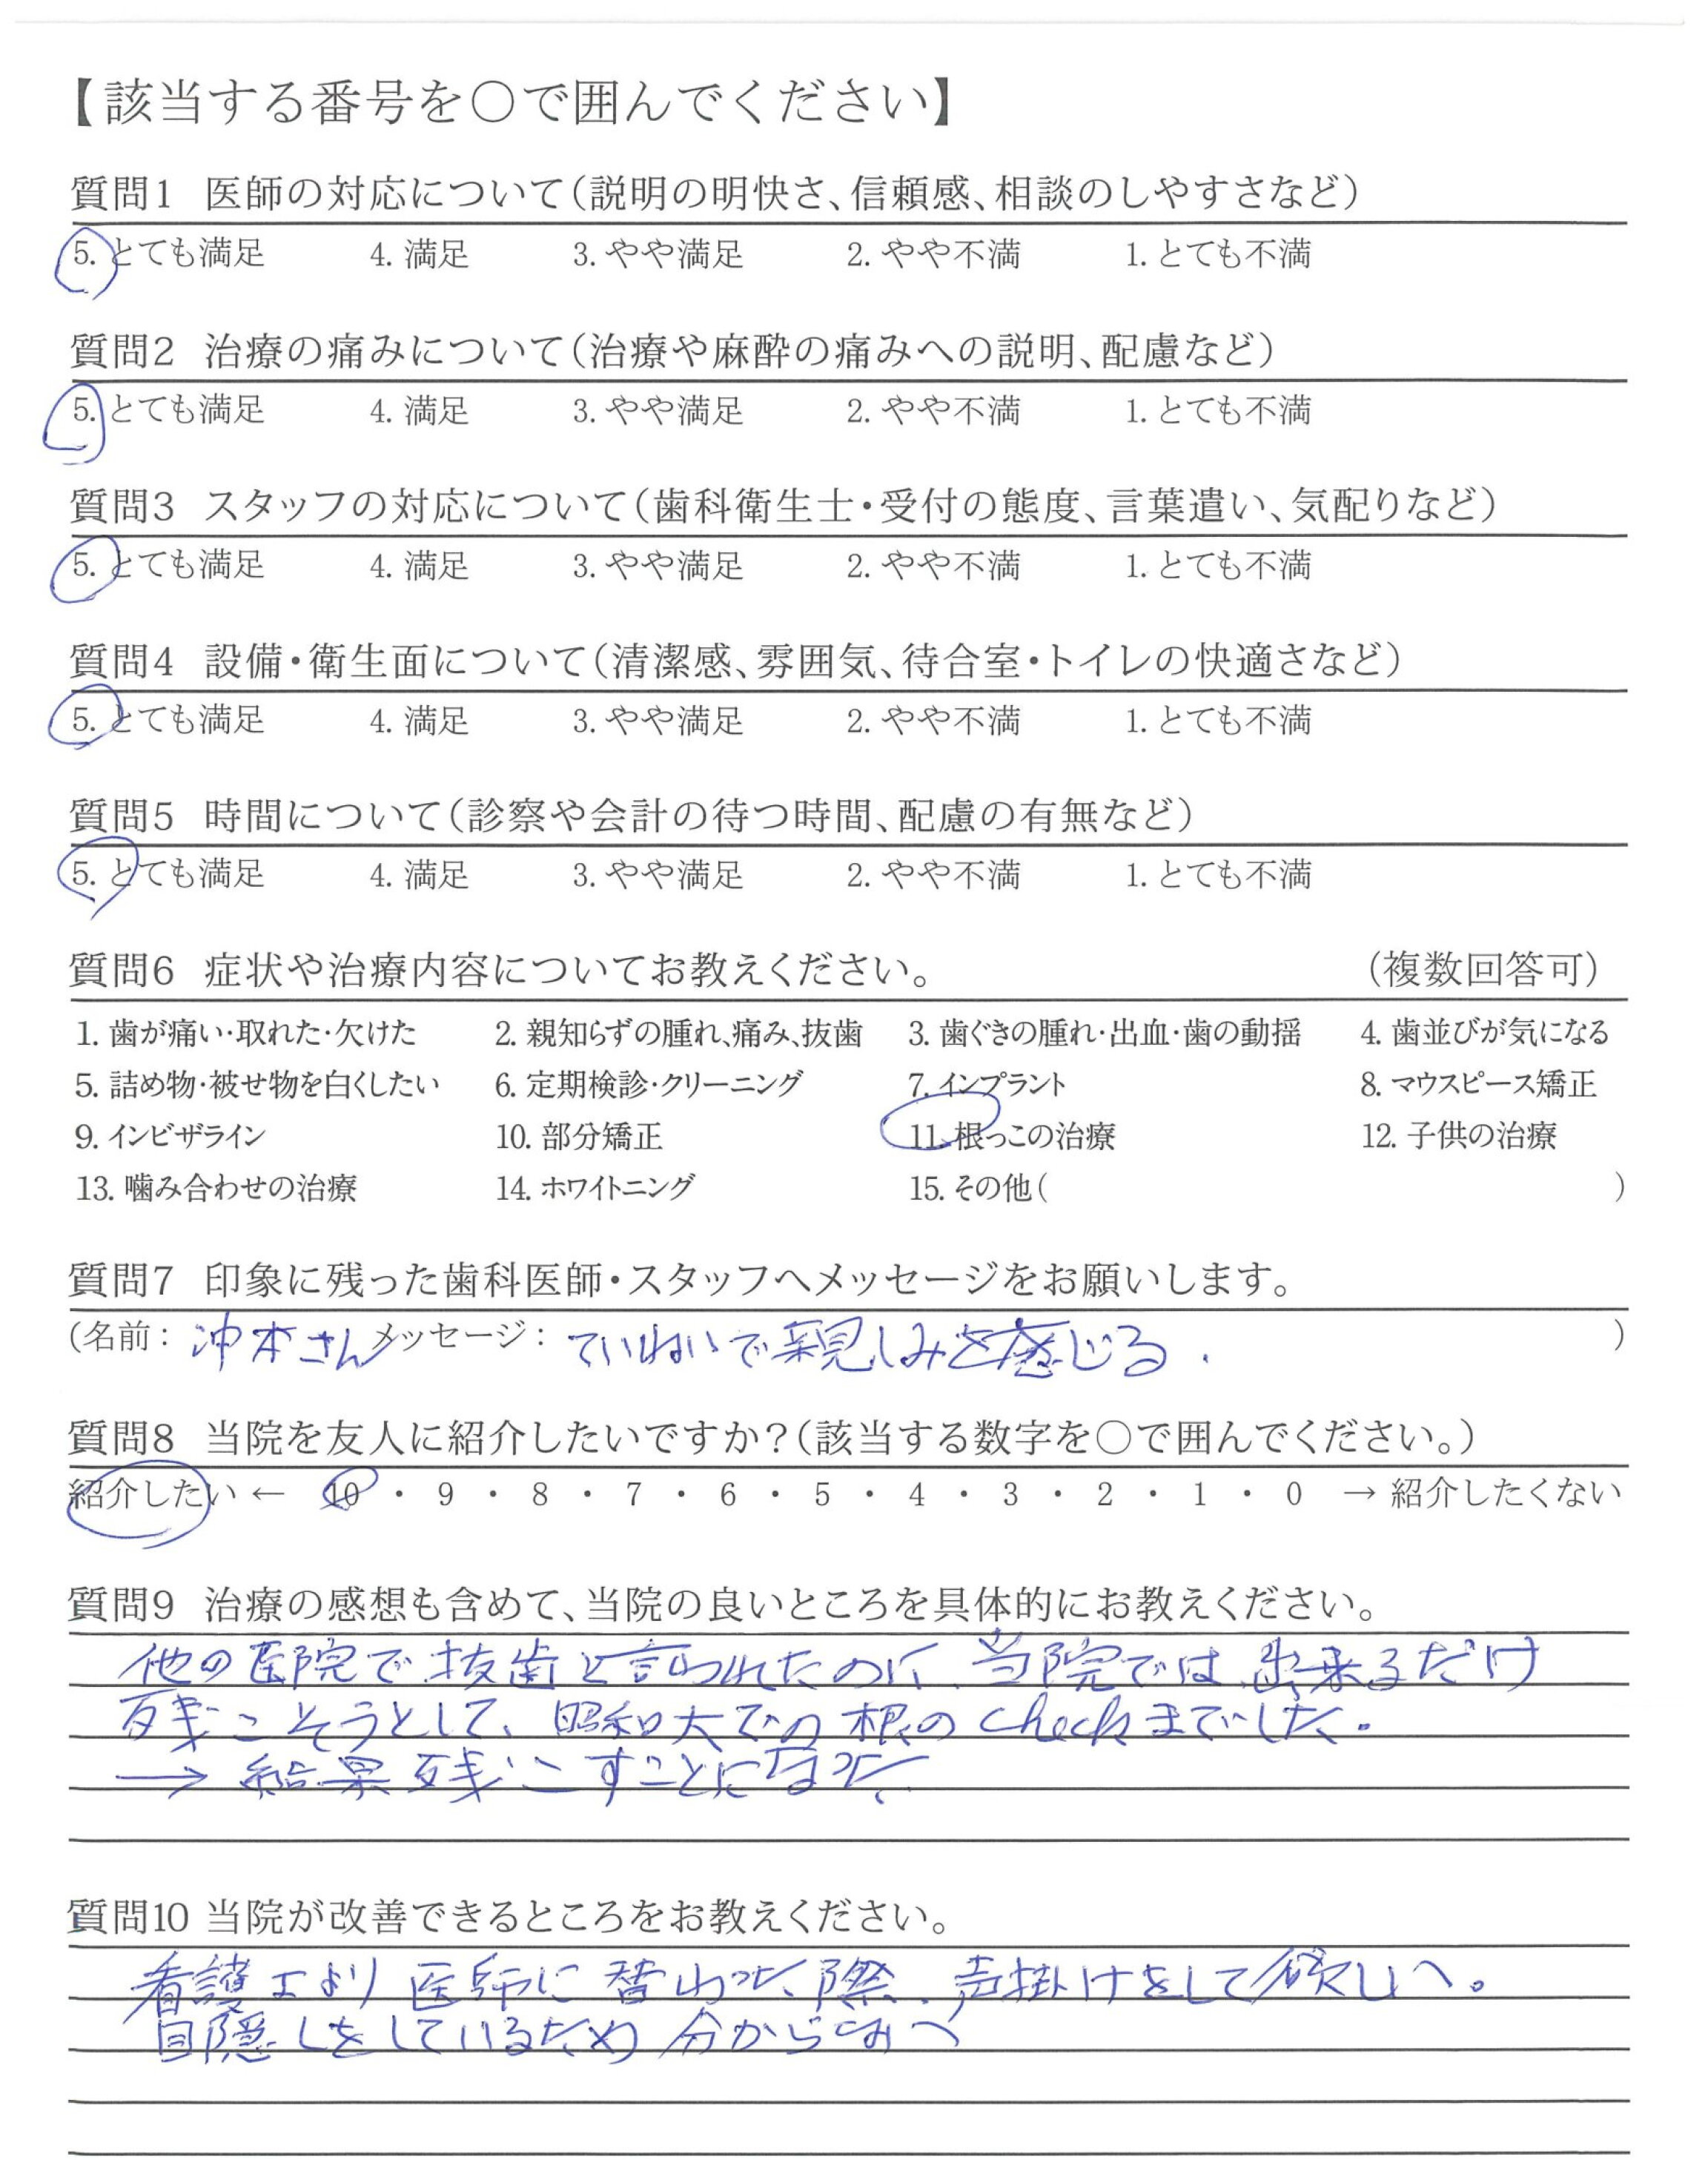 【該当する番号を○で囲んでください】
質問1 医師の対応について(説明の明快さ、信頼感、相談のしやすさなど)
5. とても満足 4. 満足 3. やや満足 2. やや不満 1. とても不満
質問2 治療の痛みについて(治療や麻酔の痛みへの説明、配慮など)
5. とても満足 4. 満足 3. やや満足 2. やや不満 1. とても不満
質問3 スタッフの対応について(歯科衛生士・受付の態度、言葉遣い、気配りなど)
5. とても満足 4. 満足 3. やや満足 2. やや不満 1. とても不満
質問4 設備・衛生面について(清潔感、雰囲気、待合室・トイレの快適さなど)
5. とても満足 4. 満足 3. やや満足 2. やや不満 1. とても不満
質問5 時間について(診察や会計の待つ時間、配慮の有無など)
5. とても満足 4. 満足 3. やや満足 2. やや不満 1. とても不満
質問6 症状や治療内容についてお教えください。 (複数回答可)
1. 歯が痛い・取れた・欠けた 2. 親知らずの腫れ、痛み、抜歯 3. 歯ぐきの腫れ・出血・歯の動揺 4. 歯並びが気になる
5. 詰め物・被せ物を白くしたい 6. 定期検診・クリーニング 7. インプラント 8. マウスピース矯正
9. インビザライン 10. 部分矯正 11. 根っこの治療 12. 子供の治療
13. 噛み合わせの治療 14. ホワイトニング 15. その他( )
質問7 印象に残った歯科医師・スタッフへメッセージをお願いします。
(名前: 沖本さん メッセージ: ていねいで親しみを感じる. )
質問8 当院を友人に紹介したいですか?(該当する数字を○で囲んでください。)
紹介したい ← 10 ・ 9 ・ 8 ・ 7 ・ 6 ・ 5 ・ 4 ・ 3 ・ 2 ・ 1 ・ 0 → 紹介したくない
質問9 治療の感想も含めて、当院の良いところを具体的にお教えください。
他の医院で抜歯と言われたのに、当院では出来るだけ
残こそうとして、昭和大での根のcheckまでした。
→ 結果残こすことになった
質問10 当院が改善できるところをお教えください。
看護士より医師に替わった際、声掛けをして欲しい。
目隠しをしているため分からない